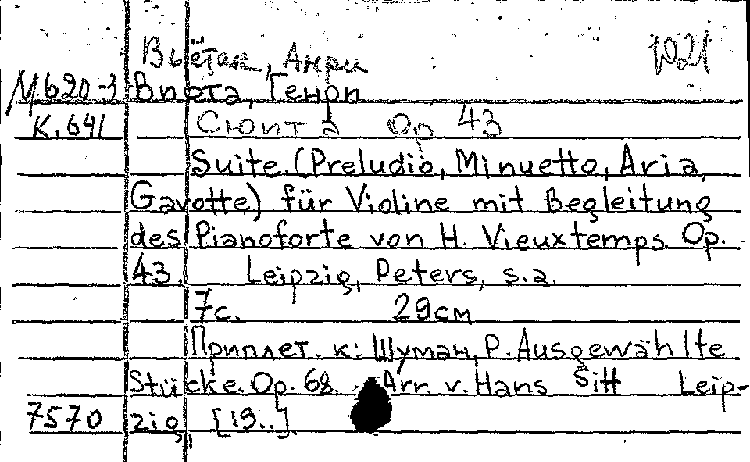 Вьётан, Анри 1021
М620-3 Виота, Генри
К.641 Сюита Op 43
Suite. (Preludio, Minuetto, Aria,
Gavotte) für Violine mit Begleitung
des Pianoforte von H. Vieuxtemps. Op.
43. Leipzig, Peters, s.a.
7с. 29см
Приплет. к: Шуман, Р. Ausgewählte
Stücke. Op. 68. Arr. v. Hans Sitt Leip-
7570 zig, [19..]